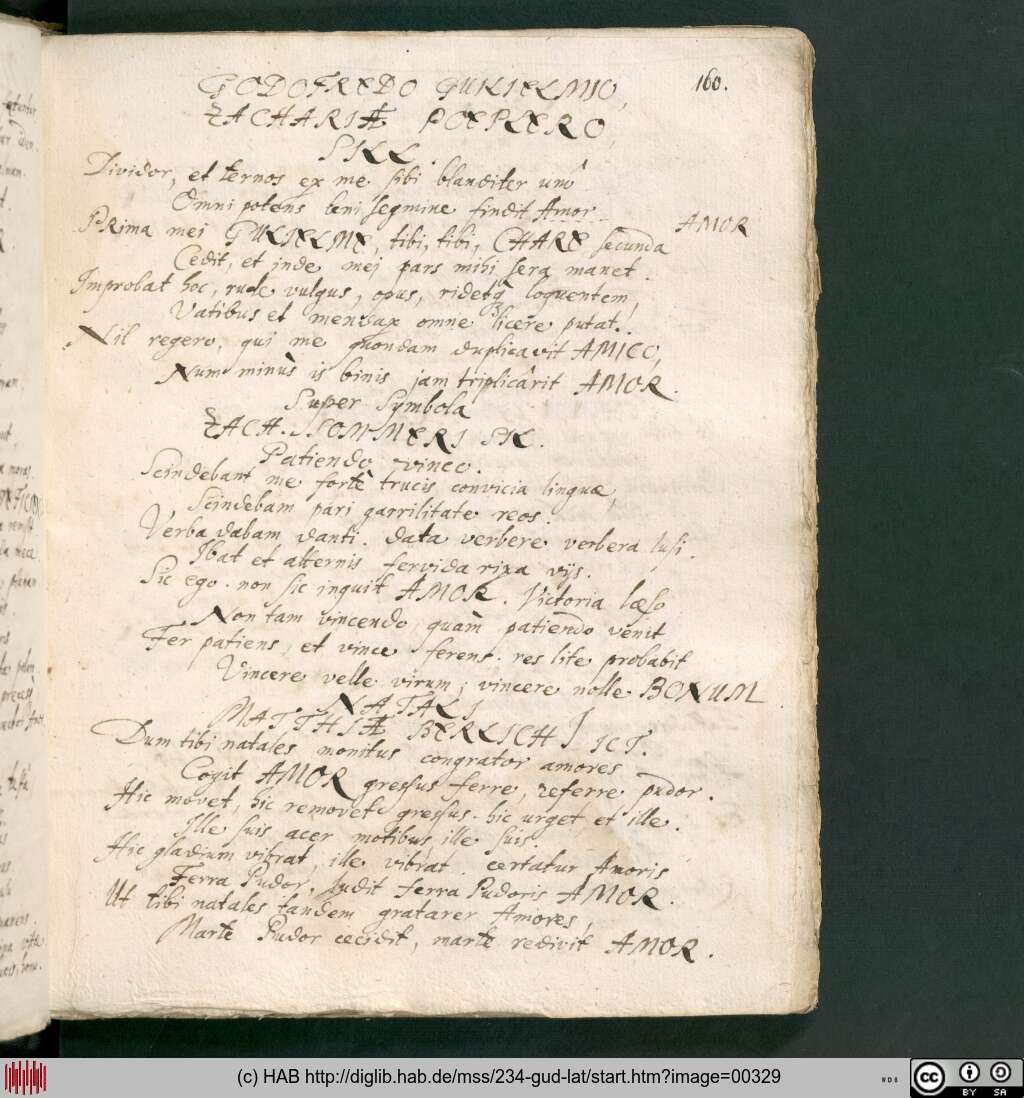 160.
GODOFREDO GULIELMIO,
ZACHARIÆ POEPLERO,
SILL.
Dividor, et ternos ex me sibi blanditer uno
Omnipotens leni segmine findit Amor.
AMOR
PRima mei GULIELME, tibi, tibi, CHARE secunda
Cedit, et inde mei pars mihi sera manet.
Improbat hoc, rude vulgus, opus, ridetq3 loquentem,
Vatibus et mendax omne licere putat.
Nil regero, qui me quondam duplicavit AMICO,
Num minùs is binis jam triplicârit AMOR.
Super Symbola
ZACH. SOMMERI SIL.
Patiendo vinco.
Scindebant me fortè trucis convicia linguæ,
Scindebam pari garrilitate reos.
Verba dabam danti. data verbere verbera lusi.
Ibat et alternis fervida rixa vijs.
Sic ego. non sic inquit AMOR. Victoria læso
Non tam vincendo quàm patiendo venit
Fer patiens, et vince ferens. res lite probabit
Vincere velle virum; vincere nolle BONUM.
NATALI
MATTHIÆ BERLICHI ICT.
Dum tibi natales monitus congrator amores
Cogit AMOR gressus ferre, referre pudor.
Hic movet, hic removet gressus. hic urget, et ille.
Ille suis acer motibus, ille suis.
Hic gladium vibrat, ille vibrat. certatur Amoris
Ferra Pudor, ludit ferra Pudoris AMOR.
Ut tibi natales tandem gratarer Amores,
Marte Pudor cecidit, marte redivit AMOR.
(c) HAB http://diglib.hab.de/mss/234-gud-lat/start.htm?image=00329
WDB
CC BY SA